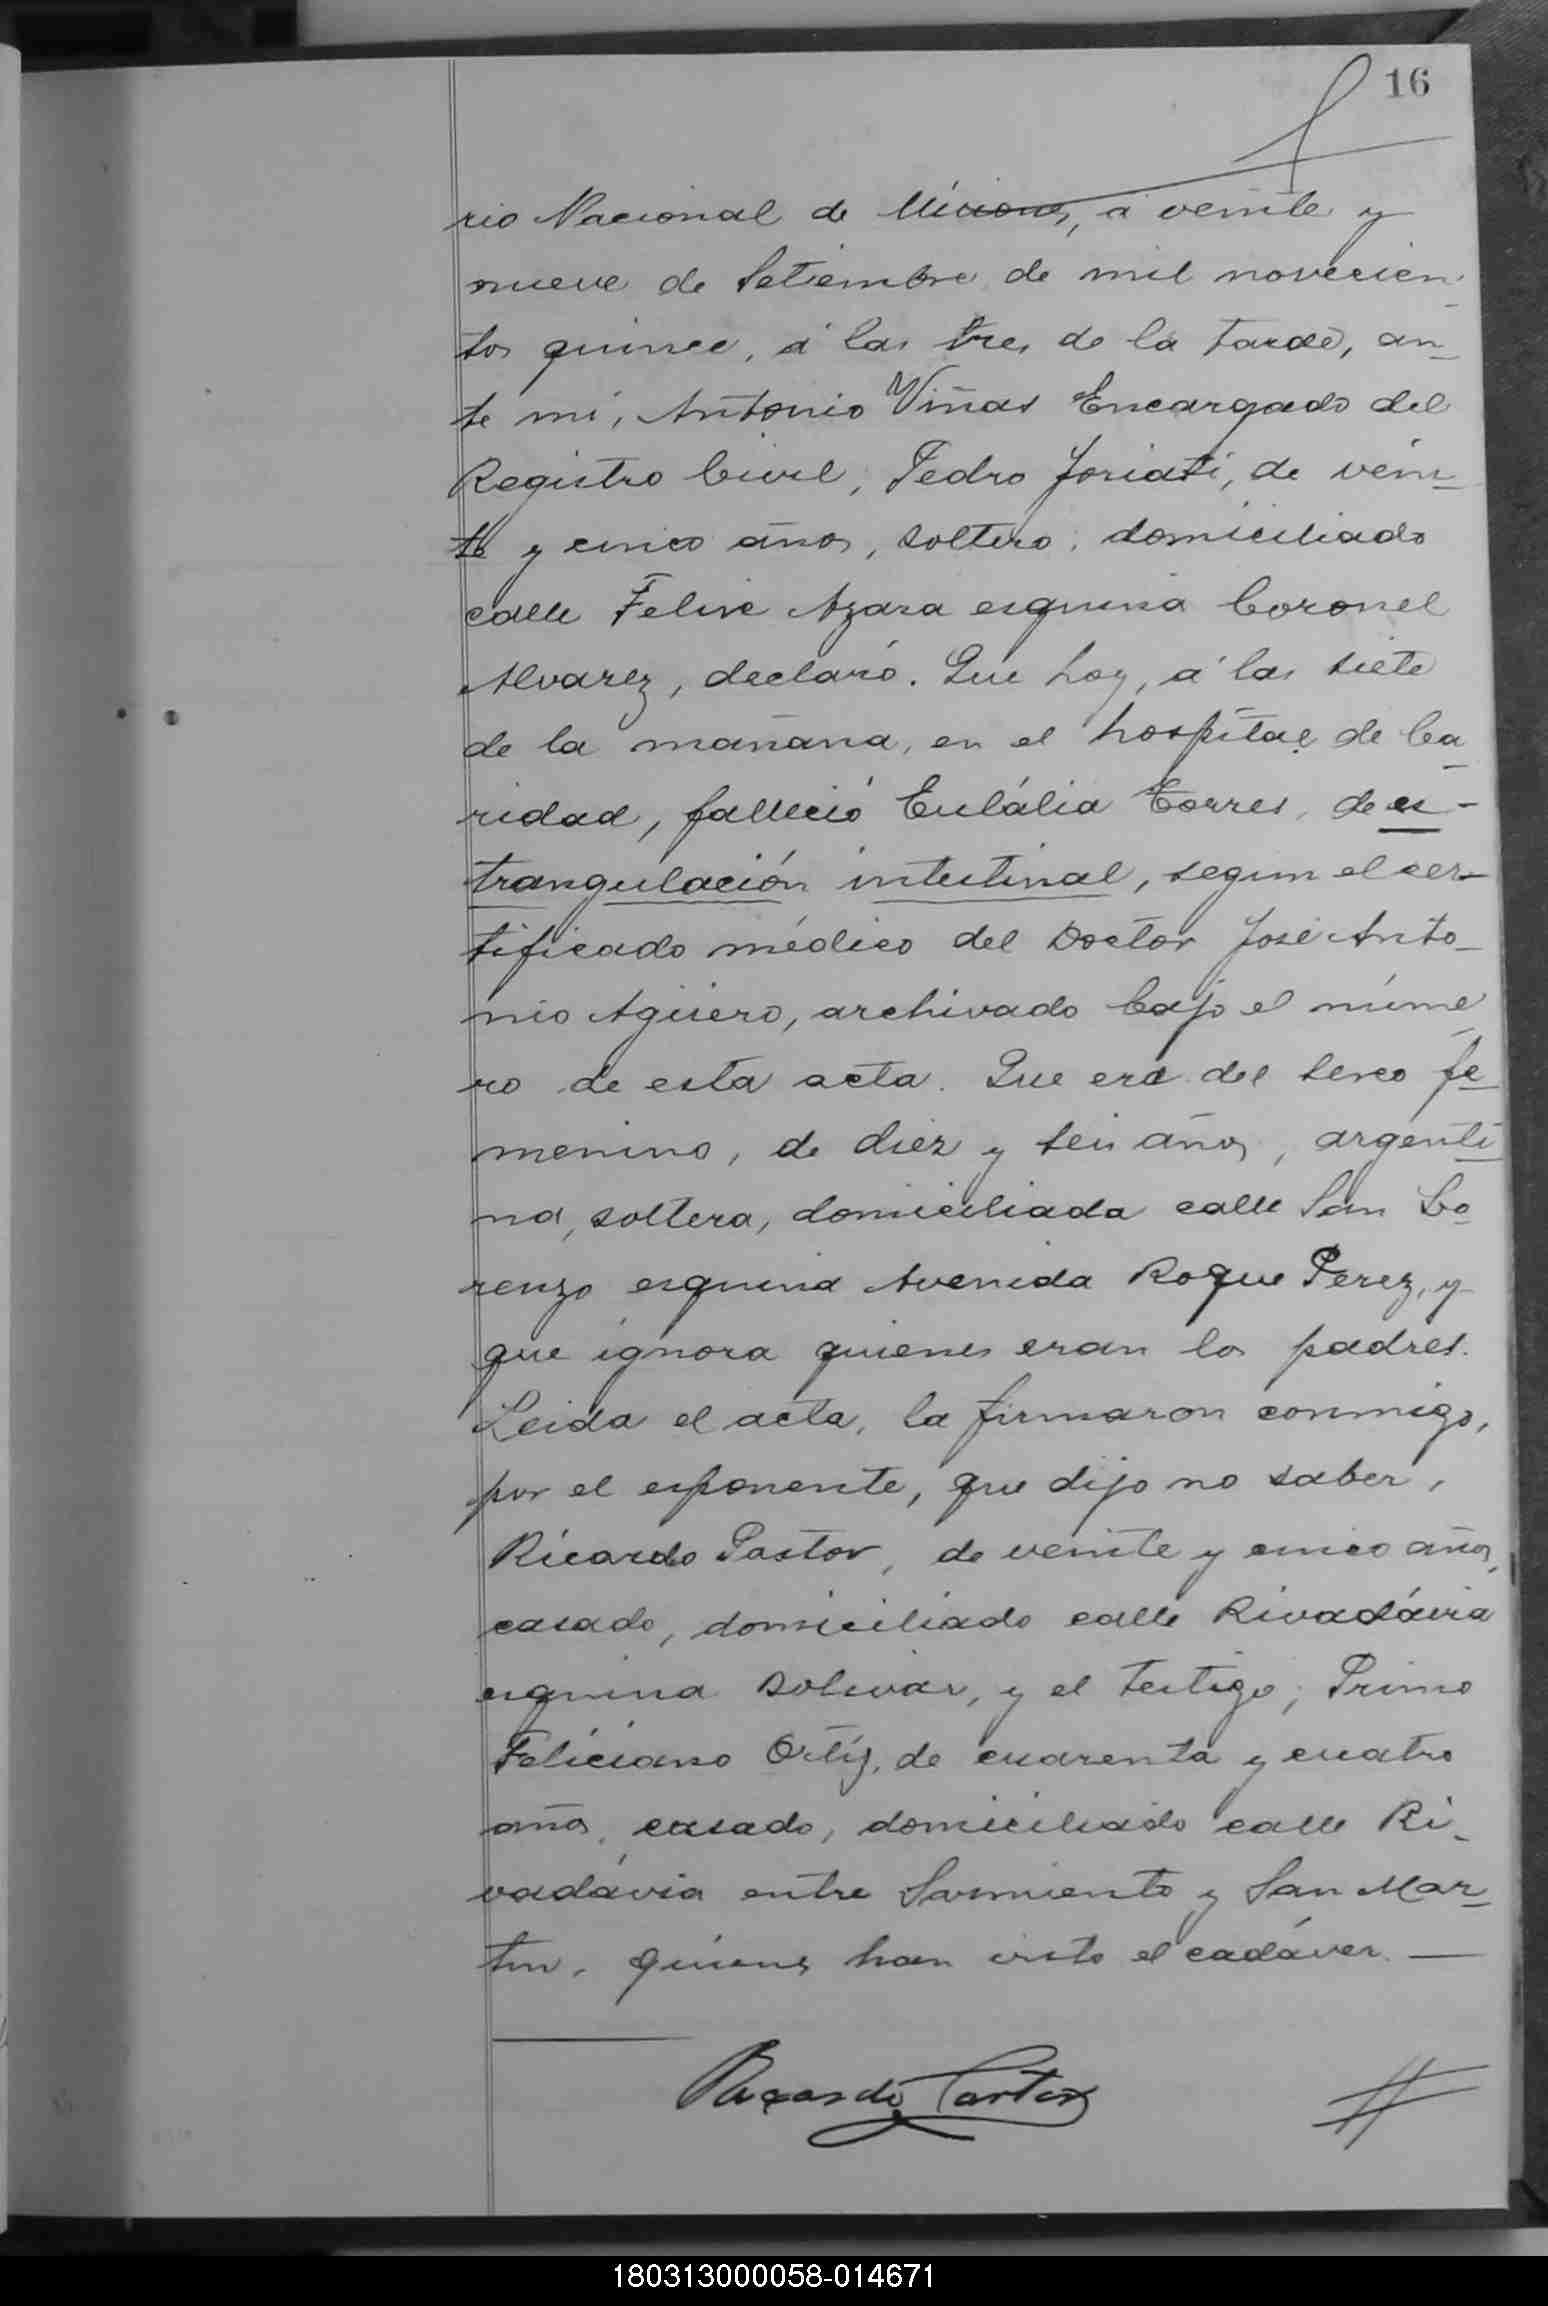 16
rio Nacional de Misiones, á veinte y
nueve de Setiembre de mil novecien
tos quince, á las tres de la tarde, an-
te mi, Antonio Viñas Encargado del
Registro Civil, Pedro Joriati, de vein-
te y cinco años, soltero, domiciliado
calle Felix Azara esquina Coronel
Alvarez, declaró. Que hoy, á las siete
de la mañana, en el hospital de Ca-
ridad, falleció Eulália Torres, de es-
trangulación intestinal, segun el cer-
tificado médico del Doctor José Anto-
nio Agüero, archivado bajo el núme-
ro de esta acta. Que era del sexo fe-
menino, de diez y seis años, argenti-
na, soltera, domiciliada calle San Lo-
renzo esquina Avenida Roque Perez, y
que ignora quienes eran los padres.
Leida el acta, la firmaron conmigo,
por el esponente, que dijo no saber,
Ricardo Pastor, de veinte y cinco años,
casado, domiciliado calle Rivadávia
esquina Bolivar, y el testigo, Primo
Feliciano Ortíz, de cuarenta y cuatro
años, casado, domiciliado calle Ri-
vadávia entre Sarmiento y San Mar-
tin, quienes han visto el cadáver.
Ricardo Pastor
180313000058-014671